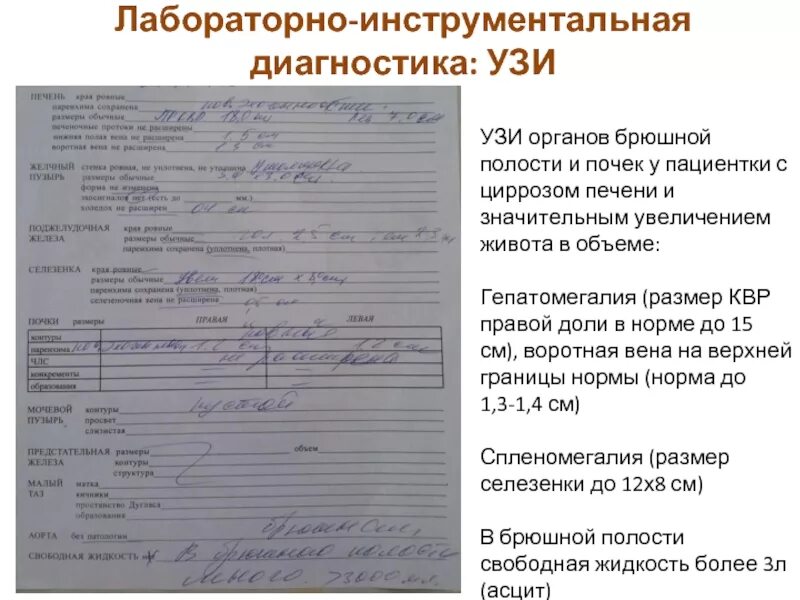 Лабораторно-инструментальная
диагностика: УЗИ
ПЕЧЕНЬ края ровные
паренхима сохранена
размеры обычные 18,0 см 7,0 см
печеночные протоки не расширены
нижняя полая вена не расширена 1,5 см
воротная вена не расширена 1,3 см
ЖЕЛЧНЫЙ стенка ровная, не уплотнена, не утолщена
ПУЗЫРЬ размеры обычные
форма не изменена
эхосигналов нет (есть до мм.)
холедох не расширен 0,4 см
ПОДЖЕЛУДОЧНАЯ края ровные
ЖЕЛЕЗА размеры обычные 2,5 см
паренхима сохранена (уплотнена, плотная)
СЕЛЕЗЕНКА края ровные
размеры обычные 18 см х
паренхима сохранена (уплотнена, плотная)
селезеночная вена не расширена
ПОЧКИ размеры ПРАВАЯ ЛЕВАЯ
контуры ровные
паренхима
ЧЛС не расширена
конкременты
образования
МОЧЕВОЙ контуры пустой
ПУЗЫРЬ просвет
слизистая
ПРЕДСТАТЕЛЬНАЯ размеры объем
ЖЕЛЕЗА контуры
структура
МАЛЫЙ матка
ТАЗ яичники
пространство Дугласа
образования
АОРТА без патологии
СВОБОДНАЯ ЖИДКОСТЬ В брюшной полости
много >3000 мл.
УЗИ органов брюшной
полости и почек у пациентки с
циррозом печени и
значительным увеличением
живота в объеме:
Гепатомегалия (размер КВР
правой доли в норме до 15
см), воротная вена на верхней
границы нормы (норма до
1,3-1,4 см)
Спленомегалия (размер
селезенки до 12х8 см)
В брюшной полости
свободная жидкость более 3л
(асцит)